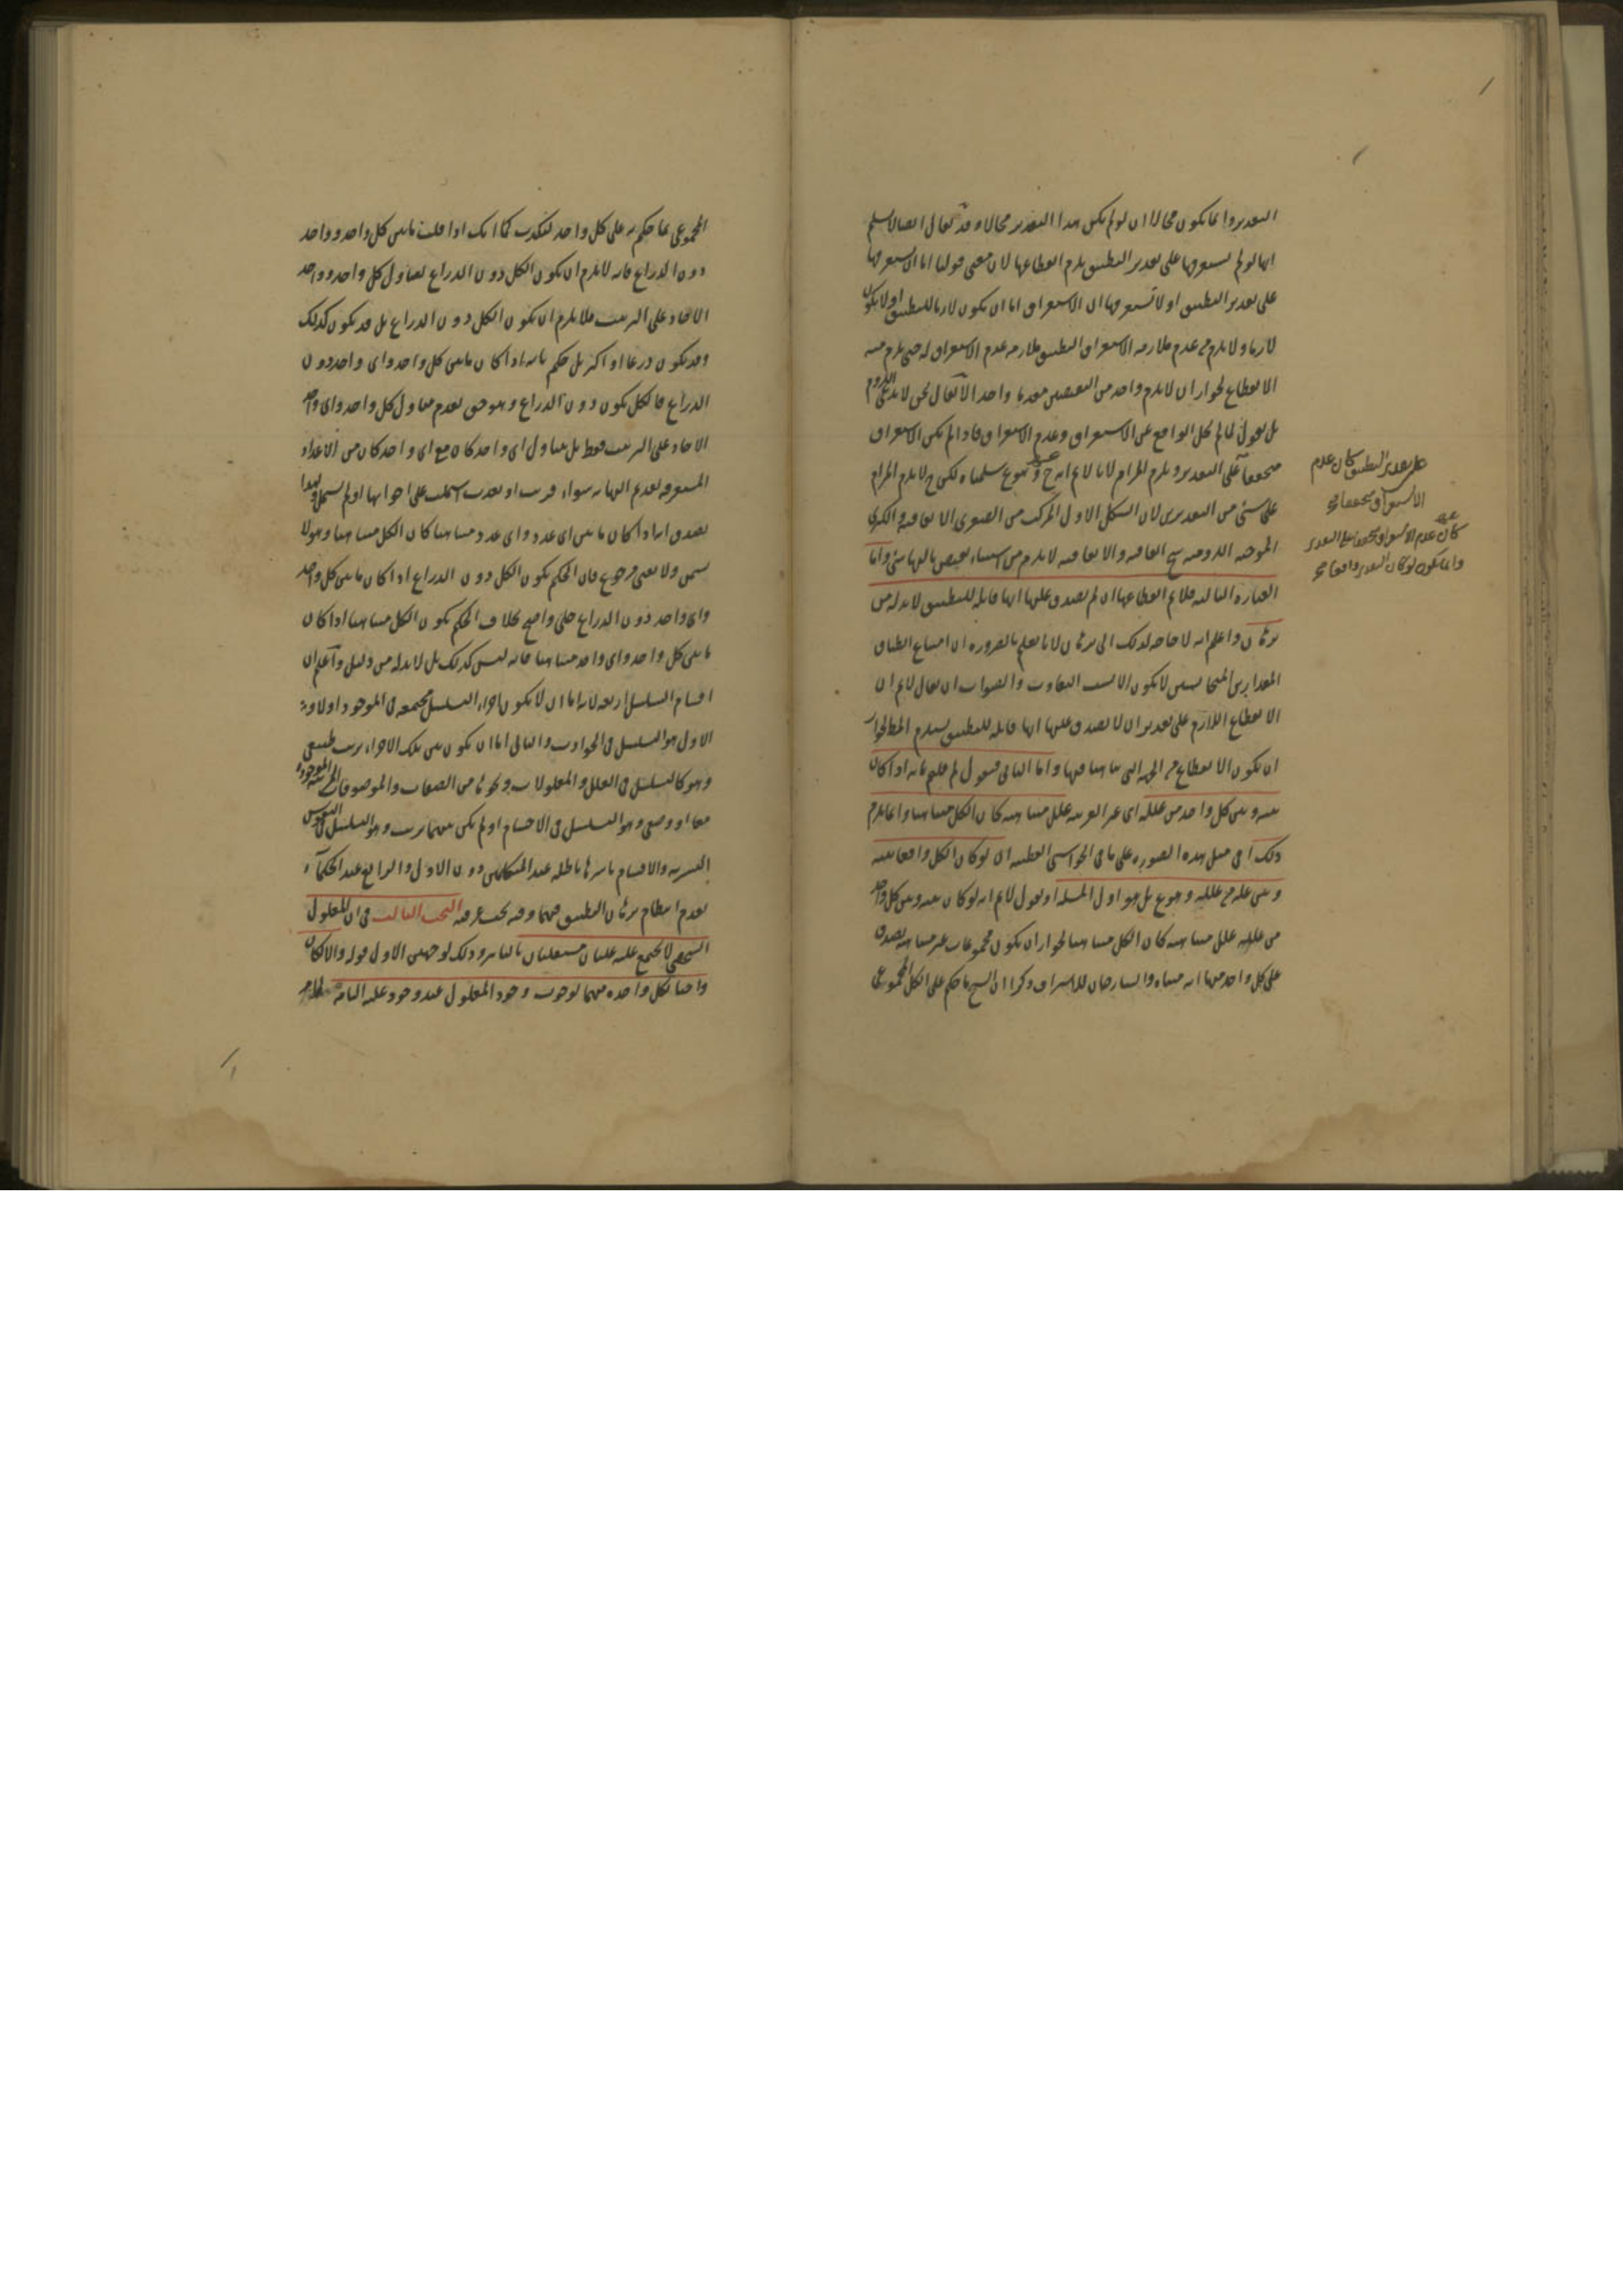 التقدير وانما يكون محالا ان لو لم يكن هذا التقدير محالا وقد يقال ايضا لا نسلم
انها لو لم تستغرقها على تقدير التطبيق يلزم انقطاعها لان معنى قولنا اما ان تستغرقها
على تقدير التطبيق او لا تستغرقها ان الاستغراق اما ان يكون لازما للتطبيق او لا يكون
لازما ولا يلزم من عدم ملازمة الاستغراق التطبيق ملازمة عدم الاستغراق له حتى يلزم منه
الانقطاع لجواز ان لا يلزم واحد من النقيضين مقدما واحدا لا يقال نحن لا ندعى اللزوم
بل نقول لما لم يخل الواقع عن الاستغراق وعدم الاستغراق فاذا لم يكن الاستغراق
متحققا على التقدير ويلزم المرام لانا لا نم انه ح سلمناه لكن ح لا يلزم المرام
على شئ من التقديرين لان الشكل الاول المركب من الصغرى الاتفاقية والكبرى
الموجبة اللزومية ينتج اتفاقية والاتفاقية لا يلزم من استثناء نقيض تاليها شئ واما
العبارة الثالثة فلا نم انقطاعها ان لم يصدق عليها انها قابلة للتطبيق لا بد له من
برهان واعلم انه لا حاجة لذلك الى برهان لانا نعلم بالضرورة ان امتناع انطباق
المقدارين المتجانسين لا يكون الا لسبب التفاوت والصواب ان يقال لا نم ان
الانقطاع اللازم على تقدير ان لا يصدق عليها انها قابلة للتطبيق يستلزم المط لجواز
ان يكون الانقطاع من الجهة التى تناهينا فيها واما الثانى فنقول لم قلتم بانه اذا كان
بينه وبين كل واحد من علله اى غير القريبة علل متناهية كان الكل متناهيا وانما يلزم
ذلك اى فى مثل هذه الصورة على ما فى الحواشى القطبية ان لو كان الكل واقعا بينه
وبين علة من علله وهو ع بل هو اول المسئلة او نقول لا نم انه لو كان بينه وبين كل واحد
من علله علل متناهية كان الكل متناهيا لجواز ان يكون مجموعات غير متناهية يصدق
على كل واحد منها انه متناه والشارحان للاشراف ذكرا ان الشيخ ما حكم على الكل المجموعى
على تقدير التطبيق كان عدم
الاستغراق متحققا
كان عدم الاستغراق متحققا على التقدير
وانما يكون لو كان التقدير واقعا
المجموعى بما حكم به على كل واحد لتكذب كما انك اذا قلت ما بين كل واحد وواحد
دون الذراع فانه لا يلزم ان يكون الكل دون الذراع لتناول كل واحد وواحد
الآحاد على الترتيب فلا يلزم ان يكون الكل دون الذراع بل قد يكون كذلك
وقد يكون ذرعا او اكثر بل حكم بانه اذا كان ما بين كل واحد واى واحد دون
الذراع فالكل يكون دون الذراع وهو حق لعدم تناول كل واحد واى واحد
الآحاد على الترتيب فقط بل يتناول اى واحد كان مع اى واحد كان من الاعداد
المستغرقة لعديم النهاية سواء قربت او بعدت اشتملت على اخواتها او لم تشتمل ولهذا
يصدق انه اذا كان ما بين اى عدد واى عدد متناهيا كان الكل متناهيا وهو لا
يسمن ولا يغنى من جوع فان الحكم بكون الكل دون الذراع اذا كان ما بين كل واحد
واى واحد دون الذراع جلى واضح بخلاف الحكم بكون الكل متناهيا اذا كان
ما بين كل واحد واى واحد متناهيا فانه ليس كذلك بل لا بد له من دليل واعلم ان
اقسام التسلسل اربعة لانه اما ان لا يكون اجزاء السلسلة مجتمعة فى الوجود او لا
الاول هو التسلسل فى الحوادث والثانى اما ان يكون بين تلك الاجزاء ترتب طبيعى
وهو كالتسلسل فى العلل والمعلولات ونحوها من الصفات والموصوفات المترتبة الموجودة
معا او وضعى وهو التسلسل فى الاجسام او لم يكن بينهما ترتب وهو التسلسل فى النفوس
البشرية والاقسام باسرها باطلة عند المتكلمين دون الاول والرابع عند الحكماء
لعدم انتظام برهان التطبيق فيهما وفيه بحث عرفته البحث الثالث فى ان المعلول
الشخصى لا يجتمع عليه علتان مستقلتان بالتأثير وذلك لوجهين الاول قوله والا لكان
واجبا لكل واحدة منهما لوجوب وجود المعلول عند وجود علته التامة